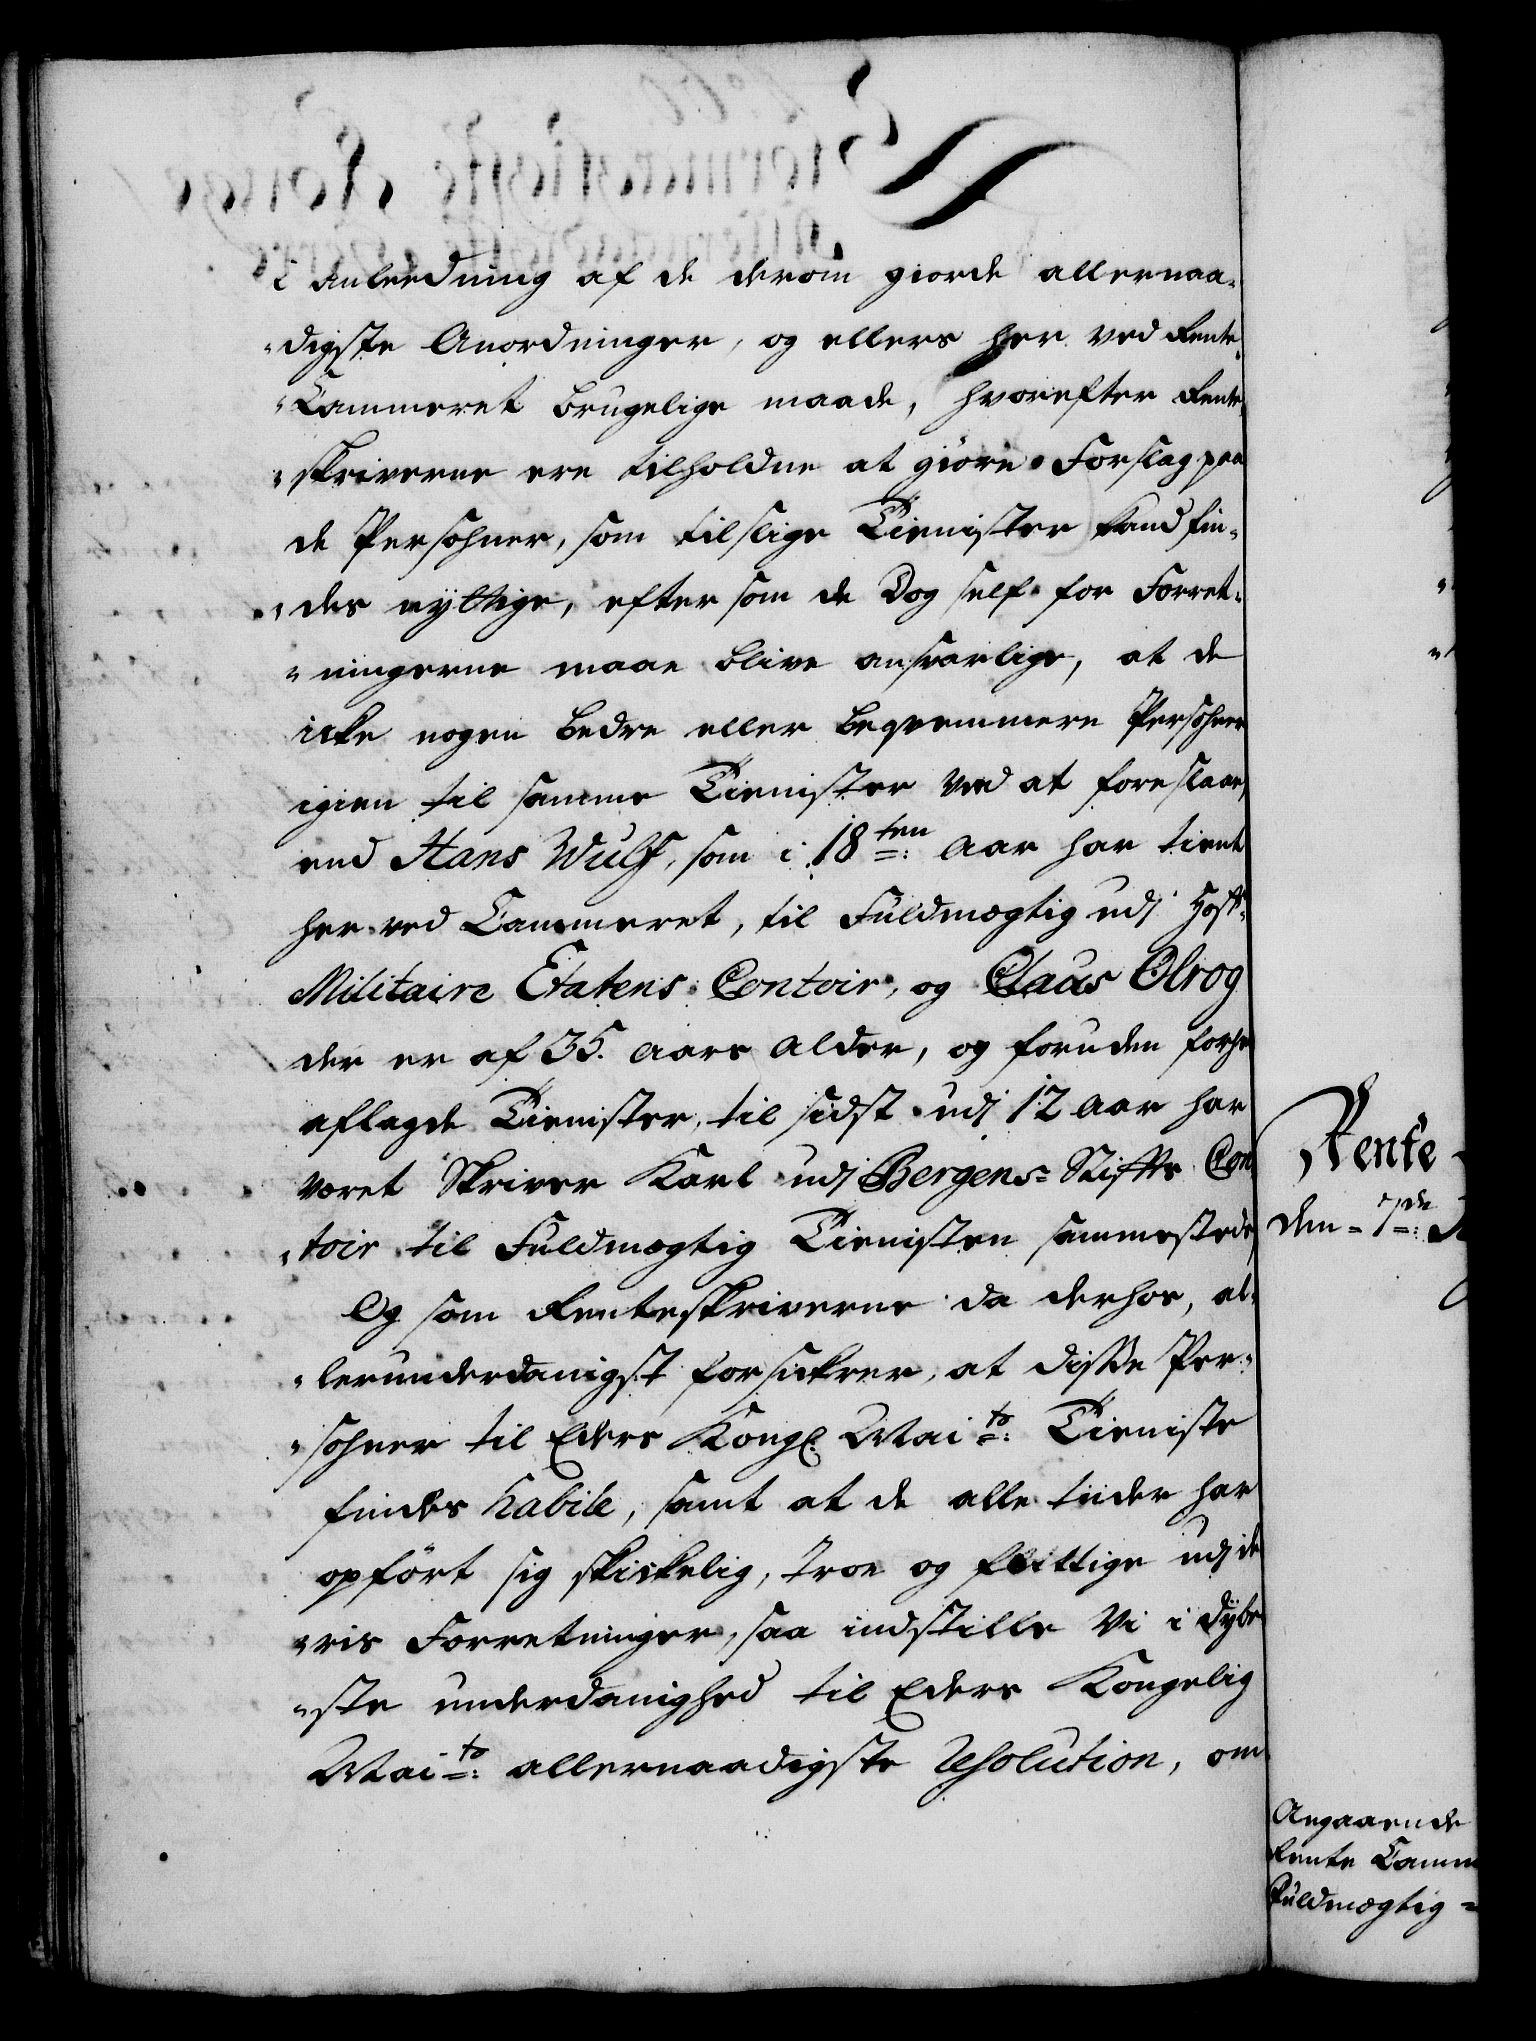 i Anleedning af de derom giorde allernaa-
-digste Anordninger, og ellers her ved Rente-
-Cammeret brugelige maade, hvorefter Rente-
-skriverne ere tilholdne at giöre Forslag paa
de Persohner, som til slige Tienister kand fin-
-des nÿttige, efter som de Dog self for Forret-
-ningerne maae blive ansvarlige, at de
icke nogen bedre eller beqvemmere Persohner
igien til samme Tienister veed at foreslaae,
end Hans Wulf, som i 18ten aar har tient
her ved Cammeret, til Fuldmægtig udj Hoff-
Militaire Etatens Contoir, og Claus Olrog
der er af 35. aars alder, og foruden forhen
aflagde Tienister, til sidst udj 12 aar har
været Skriver Karl udj Bergens Stiffts Con
-toir til Fuldmægtig Tienisten sammestæds,
Og som Renteskriverne da derhos, al-
-lerunderdanigst forsickrer, at disse Per-
-sohner til Eders Kongl. Maitz: Tieniste
findes habile, samt at de alle tiider har
opfört sig skickelig, troe og flittige udj de
-ris Forretninger, saa indstille Vi i dÿbe
-ste underdanighed til Eders Kongelig
Maitz: allernaadigste Resolution, om
Rente
den 7de:
Angaaende
Rente Camm
Fuldmægtig